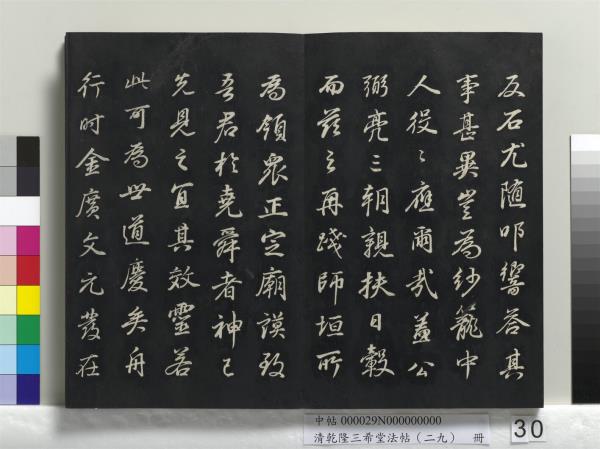 反石尤随叩響答其
事甚異豈為紗籠中
人役〻應爾哉蓋公
弼亮三朝親扶日轂
而茲之再踐師垣所
為領眾正定廟謨致
吾君於堯舜者神已
先見之宜其效靈若
此可為世道慶矣舟
行时金廣文元發在
中帖 000029N000000000
清乾隆三希堂法帖（二九） 冊
30